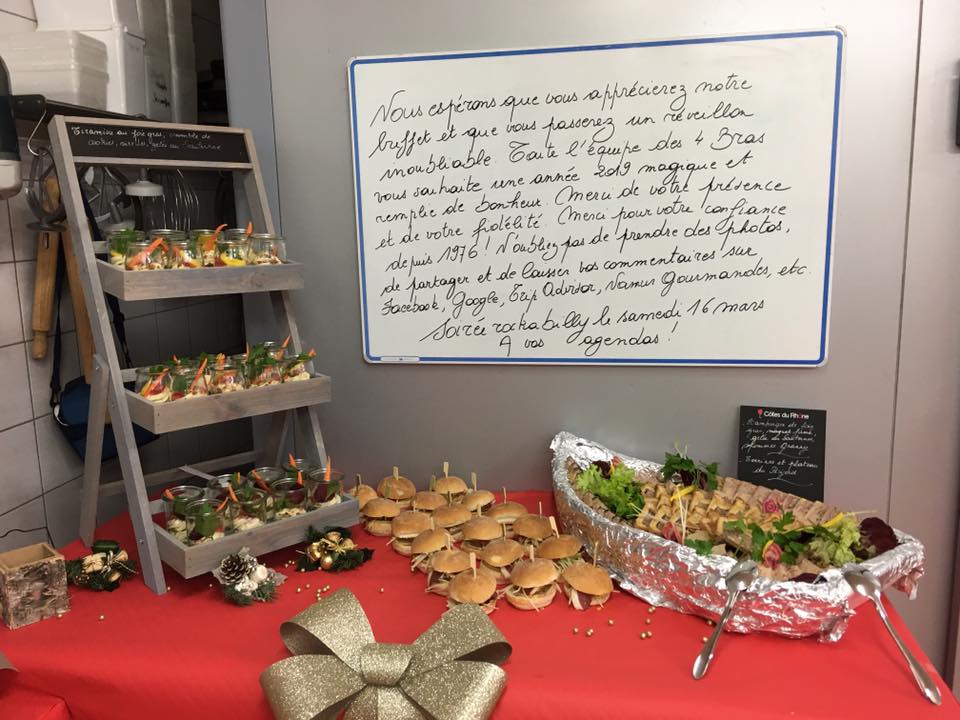 Tiramisu au foie gras, crumble de
cookies, gelée au Sauternes
Nous espérons que vous apprécierez notre
buffet et que vous passerez un réveillon
inoubliable. Toute l'équipe des 4 Bras
vous souhaite une année 2019 magique et
remplie de bonheur. Merci de votre présence
et de votre fidélité. Merci pour votre confiance
depuis 1976! N'oubliez pas de prendre des photos,
de partager et de laisser vos commentaires sur
Facebook, Google, Trip Advisor, Namur Gourmandes, etc.
Soirée rockabilly le samedi 16 mars
A vos agendas!
Côtes du Rhône
Hamburger de foie
gras, magret fumé,
gelée de Sauternes,
pommes Granny
Terrines et plateau
du